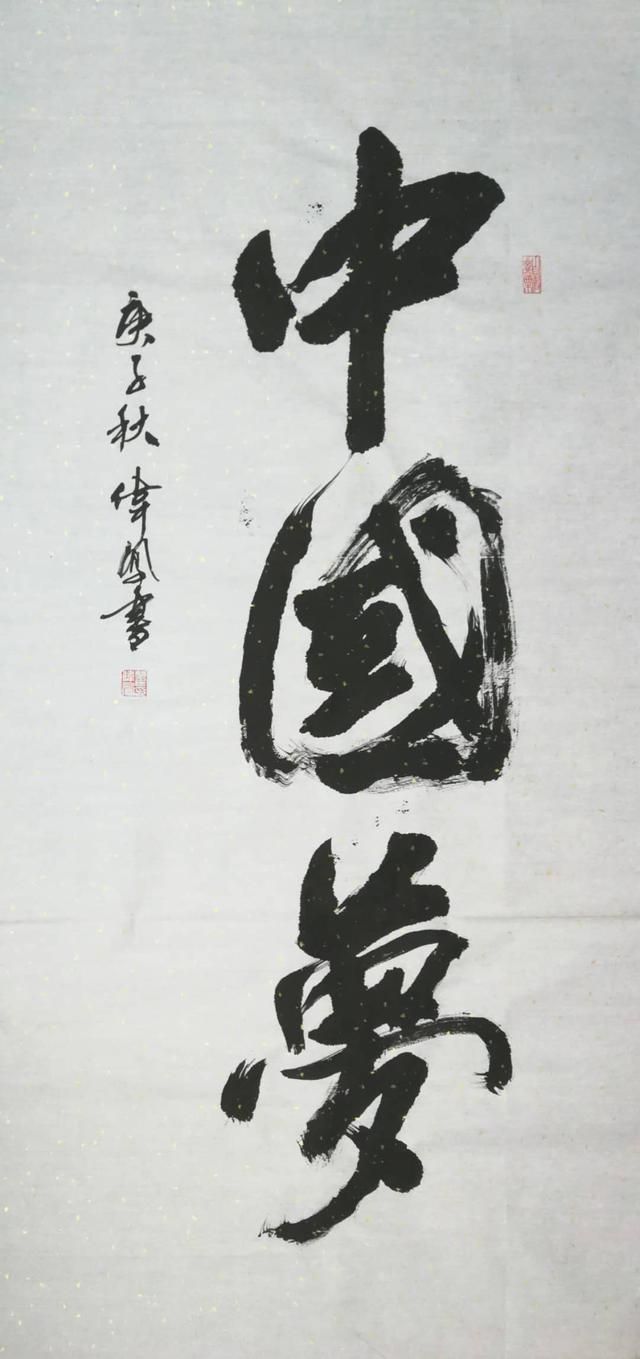 中國夢
庚子秋偉鳳書